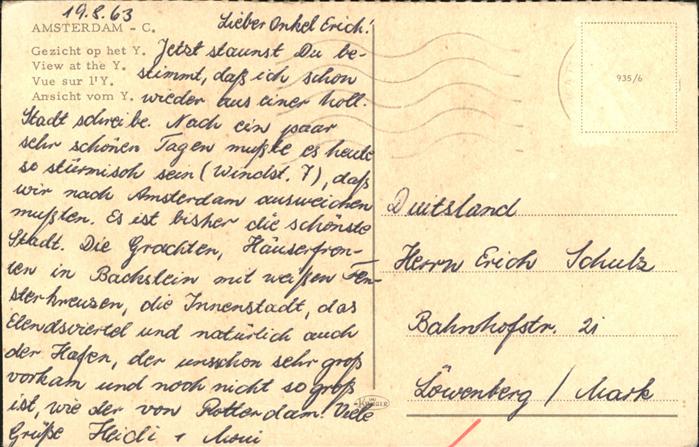 19.8.63
AMSTERDAM - C.
Gezicht op het Y.
View at the Y.
Vue sur l'Y.
Ansicht vom Y.
Lieber Onkel Erich!
Jetzt staunst Du be-
stimmt, daß ich schon
wieder aus einer holl.
Stadt schreibe. Nach ein paar
sehr schönen Tagen mußte es heute
so stürmisch sein (Windst. 7), daß
wir nach Amsterdam ausweichen
mußten. Es ist bisher die schönste
Stadt. Die Grachten, Häuserfron-
ten in Backstein mit weißen Fen-
sterkreuzen, die Innenstadt, das
Elendsviertel und natürlich auch
der Hafen, der uns schon sehr groß
vorkam und noch nicht so groß
ist, wie der von Rotterdam. Viele
Grüße Heidi
935/6
Duitsland
Herrn Erich Schulz
Bahnhofstr. 21
Löwenberg / Mark
KRUGER